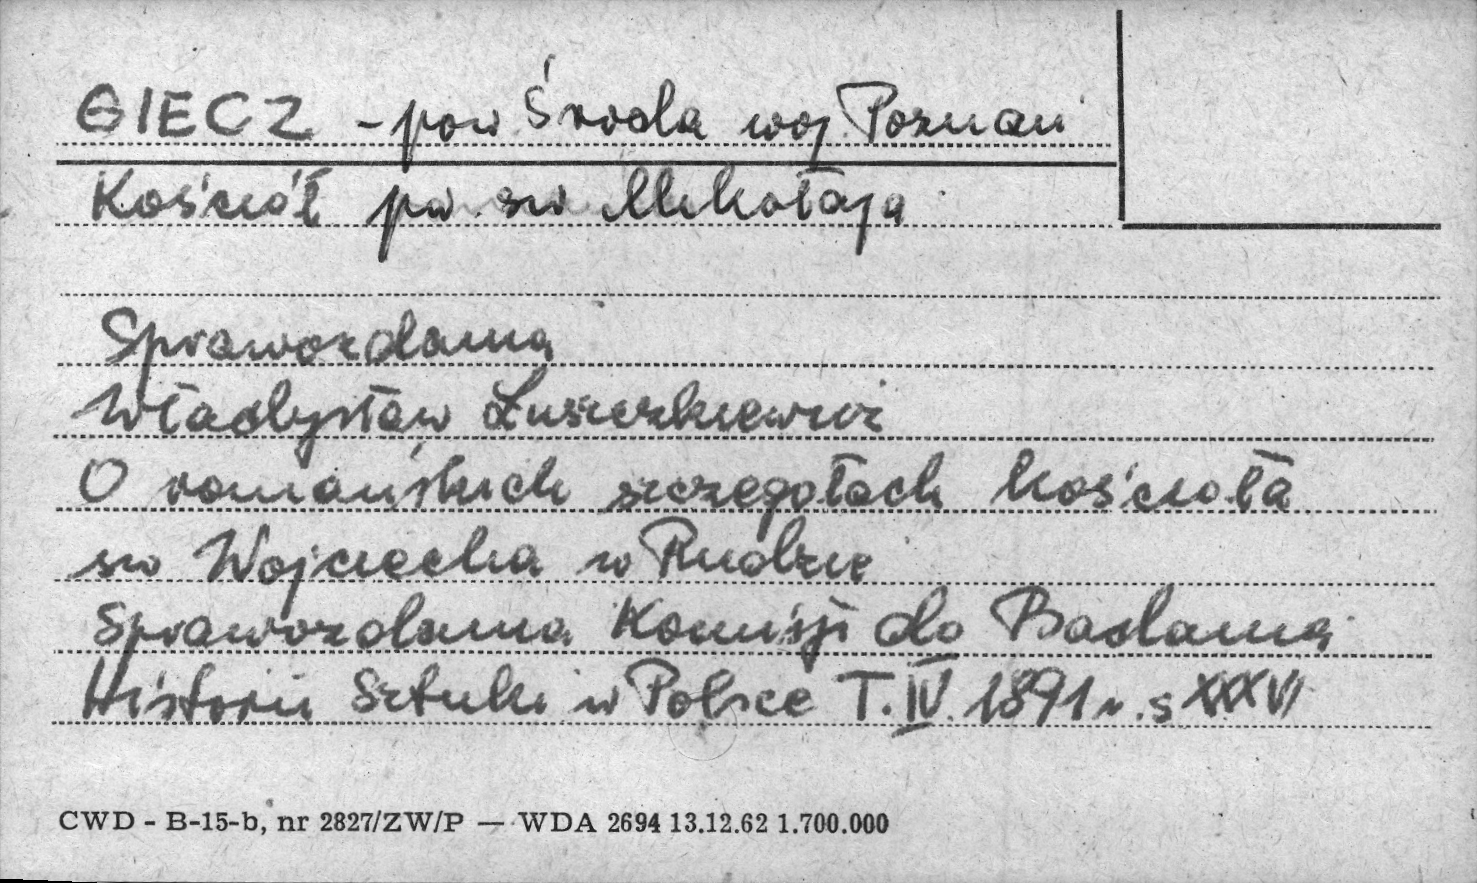 GIECZ - pow. Środa woj. Poznań
Kościół pw. św Mikołaja
Sprawozdania
Władysław Łuszczkiewicz
O romańskich szczegółach kościoła
św Wojciecha w Rudzie
Sprawozdania Komisji do Badania
Historii Sztuki w Polsce T. IV. 1891 r. s XXXVI
CWD - B-15-b, nr 2827/ZW/P — WDA 2694 13.12.62 1.700.000